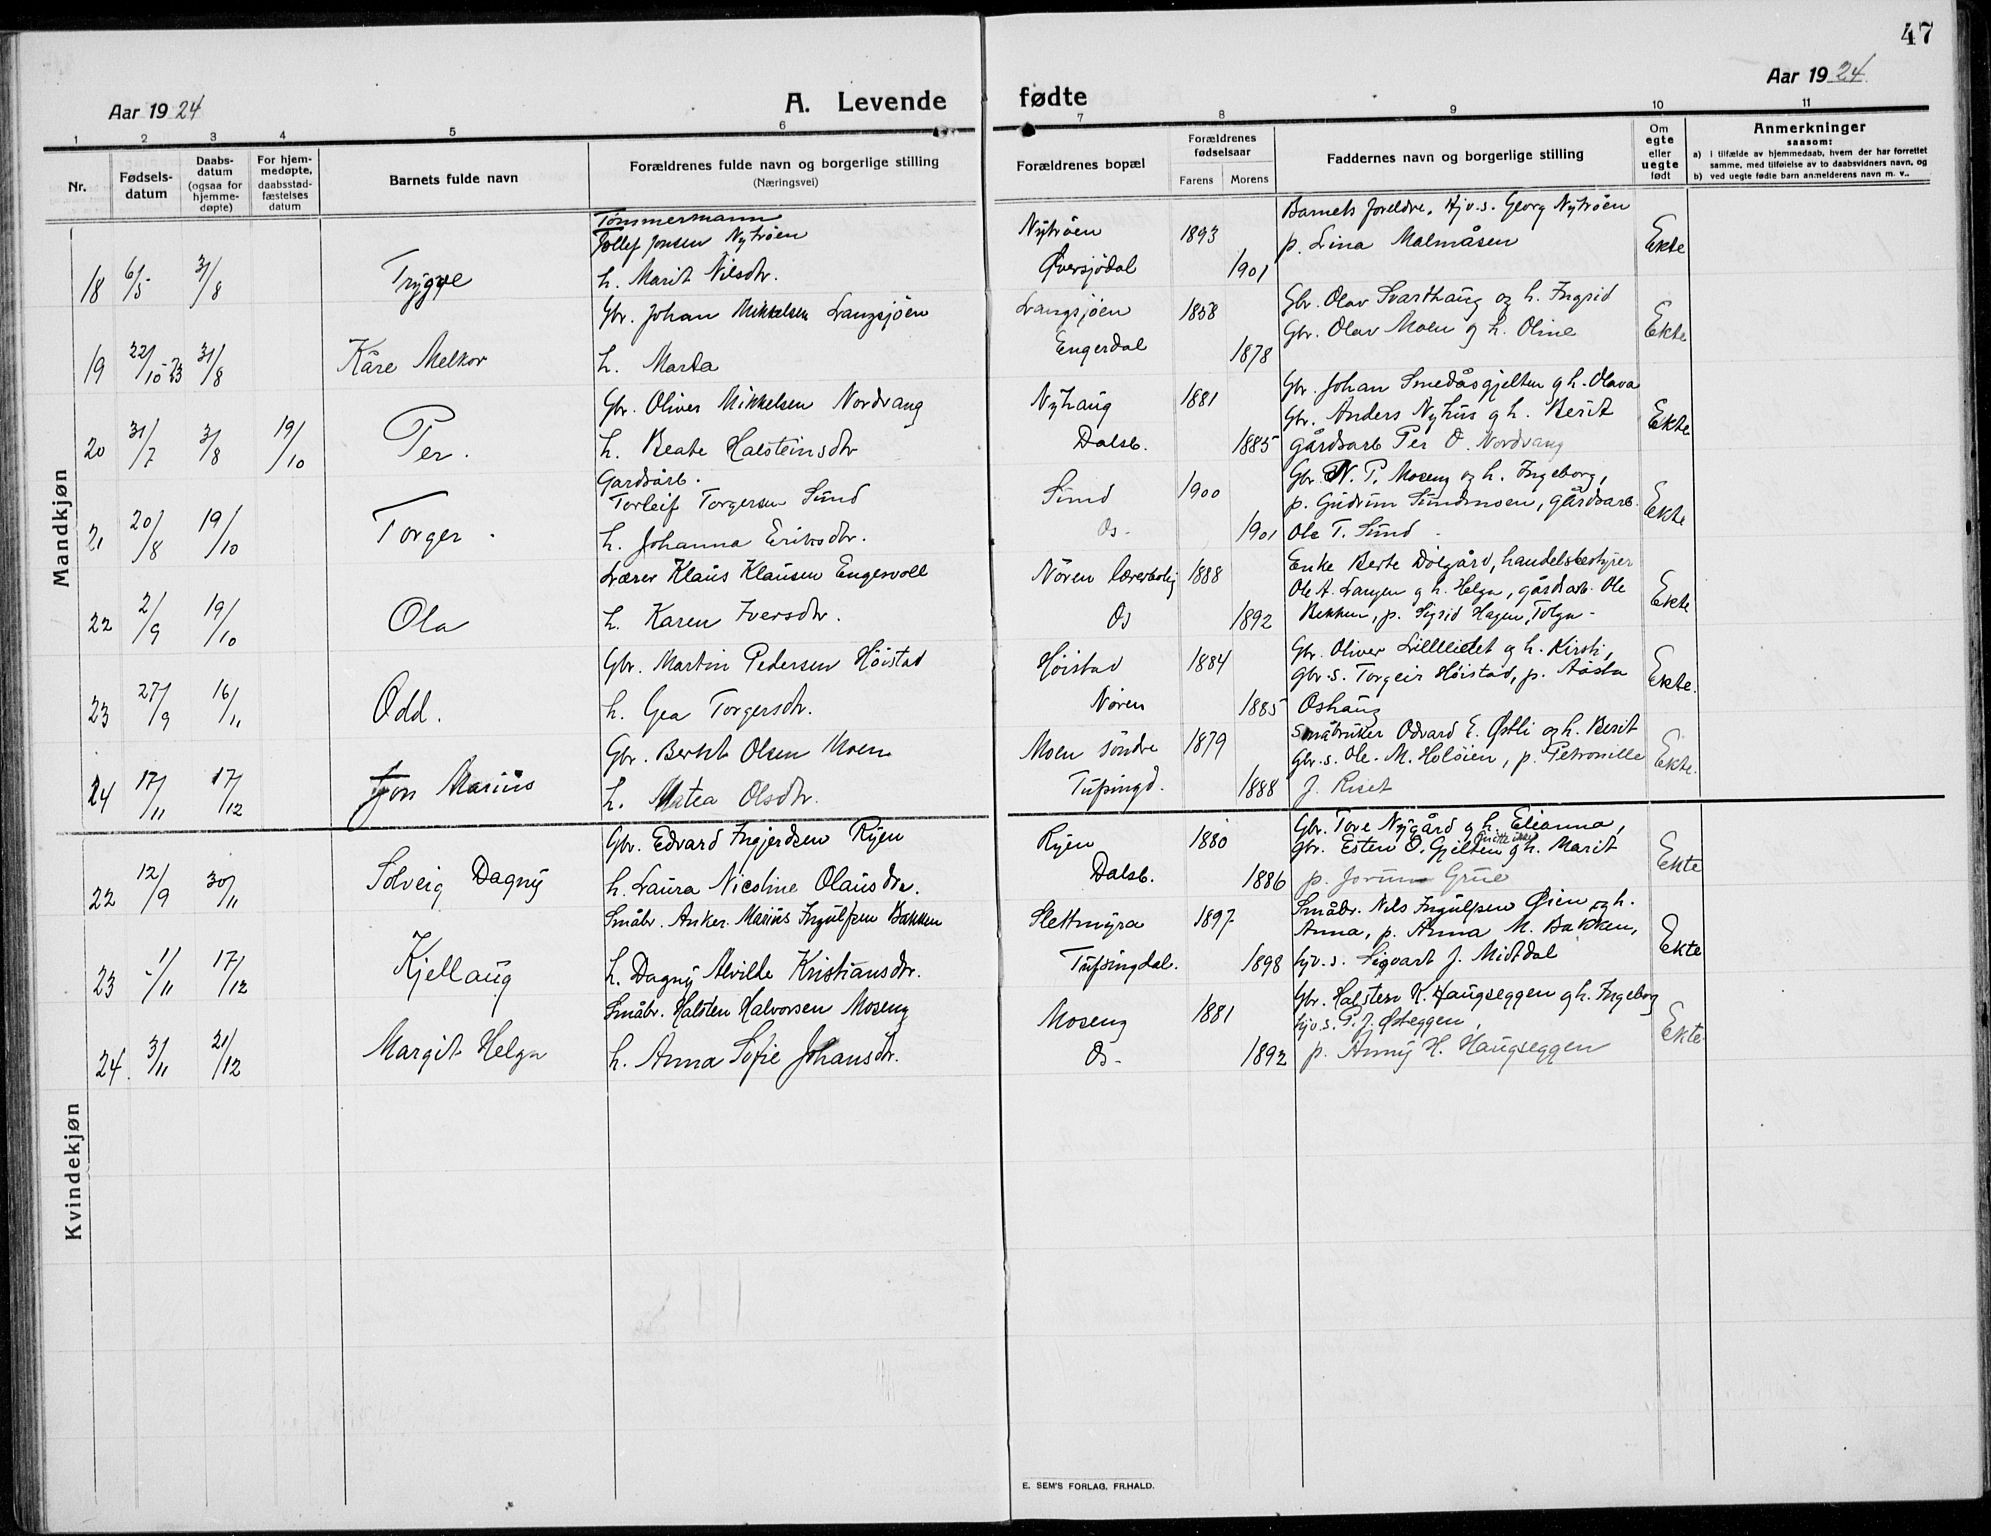 47
Aar 1924
A. Levende
fødte
Aar 1924
1 2 3 4 5 6 7 8 9 10 11
Nr.
Fødsels-
datum
Daabs-
datum
(ogsaa for
hjemme-
døpte)
For hjem-
medøpte,
daabsstad-
fæstelses
datum
Barnets fulde navn
Forældrenes fulde navn og borgerlige stilling
(Næringsvei)
Forældrenes bopæl
Forældrenes
fødselsaar
Farens Morens
Faddernes navn og borgerlige stilling
Om
egte
eller
uegte
født
Anmerkninger
saasom:
a) i tilfælde av hjemmedaab, hvem der har forrettet
samme, med tilføielse av to daabsvidners navn, og
b) ved uegte fødte barn anmelderens navn m. v..
Mandkjøn
Tømmermann
18 6/5 3/8 Trygve
Tollef Jonsen Nytrøen
h. Marit Nilsdtr.
Nytrøen
Øversjødal
1893
1901
Barnets foreldre, Hjv.s. Georg Nytrøen
p. Lina Malmåsen
Ekte
19 22/10-23 31/8 Kåre Melkor
Gbr. Johan Mikkelsen Langsjøen
h. Marta
Langsjøen
Engerdal
1858
1878
Gbr. Olav Svarthaug og h. Ingrid
Gbr. Olav Moen og h. Oline
Ekte
20 31/7 3/8 19/10 Per.
Gbr. Oliver Mikkelsen Nordvang
h. Beate Halsteinsdtr
Nyhaug
Dalsb.
1881
1885
Gbr. Johan Smedåsgjelten og h. Olava
Gbr. Anders Nyhus og h. Berit
gårdsarb Per O. Nordvang
Ekte
21 20/8 19/10 Torger.
Gardsarb.
Torleif Torgersen Sund
h. Johanna Eriksdtr.
Sund
Os-
1900
1901
Gbr. N. P. Moseng og h. Ingeborg,
p. Gudrun Sundmoen, gårdsarb.
Ole T. Sund
Ekte
22 2/9 19/10 Ola
Lærer Klaus Klausen Engesvoll
h. Karen Iversdtr.
Nøren lærerbolig
Os
1888
1892
Enke Berte Dølgård, handelsbestyrer
Ole A. Langen og h. Helga, gårdsarb. Ole
Bekken, p. Sigrid Hagen, Tolga-
Ekte
23 27/9 16/11 Odd.
Gbr. Martin Pedersen Høistad
h. Gea Torgersdtr.
Høistad
Nøren
1884
1885
Gbr. Oliver Lilleeidet og h. Kirsti,
Gbr.s. Torgeir Høistad, p. Aasta
Oshaug
Ekte.
24 17/11 17/12 Jon Marius
Gbr. Berht Olsen Moen
h. Matea Olsdtr.
Moen søndre
Tufsingd.
1879
1888
Småbruker Odvard E. Østli og h. Berit
Gbr.s. Ole M. Holøien, p. Petronille
J. Riset
Ekte.
Kvindekjøn
22 12/9 30/11 Solveig Dagny
Gbr. Edvard Ingjerdsen Ryen
h. Laura Nicoline Olausdtr.
Ryen
Dalsb.
1880
1886
Gbr. Tore Nygård og h. Elianna,
Gbr. Esten O. Gjelten og h. Marit
p. Jorun Grue
Ekte
23 1/11 17/12 Kjellaug
Småbr. Anker Marius Ingulfsen Bakken
h. Dagny Alvilde Kristiansdtr.
Slettmyra
Tufsingdal.
1897
1898
Småbr. Nils Ingulfsen Øien og h.
Anna, p. Anna M. Bakken,
hjv.s. Sigvart J. Midtdal
Ekte
24. 3/11 21/12 Margit Helga
Småbr. Halsten Halvorsen Moseng
h. Anna Sofie Johansdtr.
Moseng
Os-
1881
1892
Gbr. Halsten K. Haugseggen og h. Ingeborg
hjv.s. P. J. Østeggen,
p. Anny H. Haugseggen
Ekte
E. SEM'S FORLAG, FR.HALD.